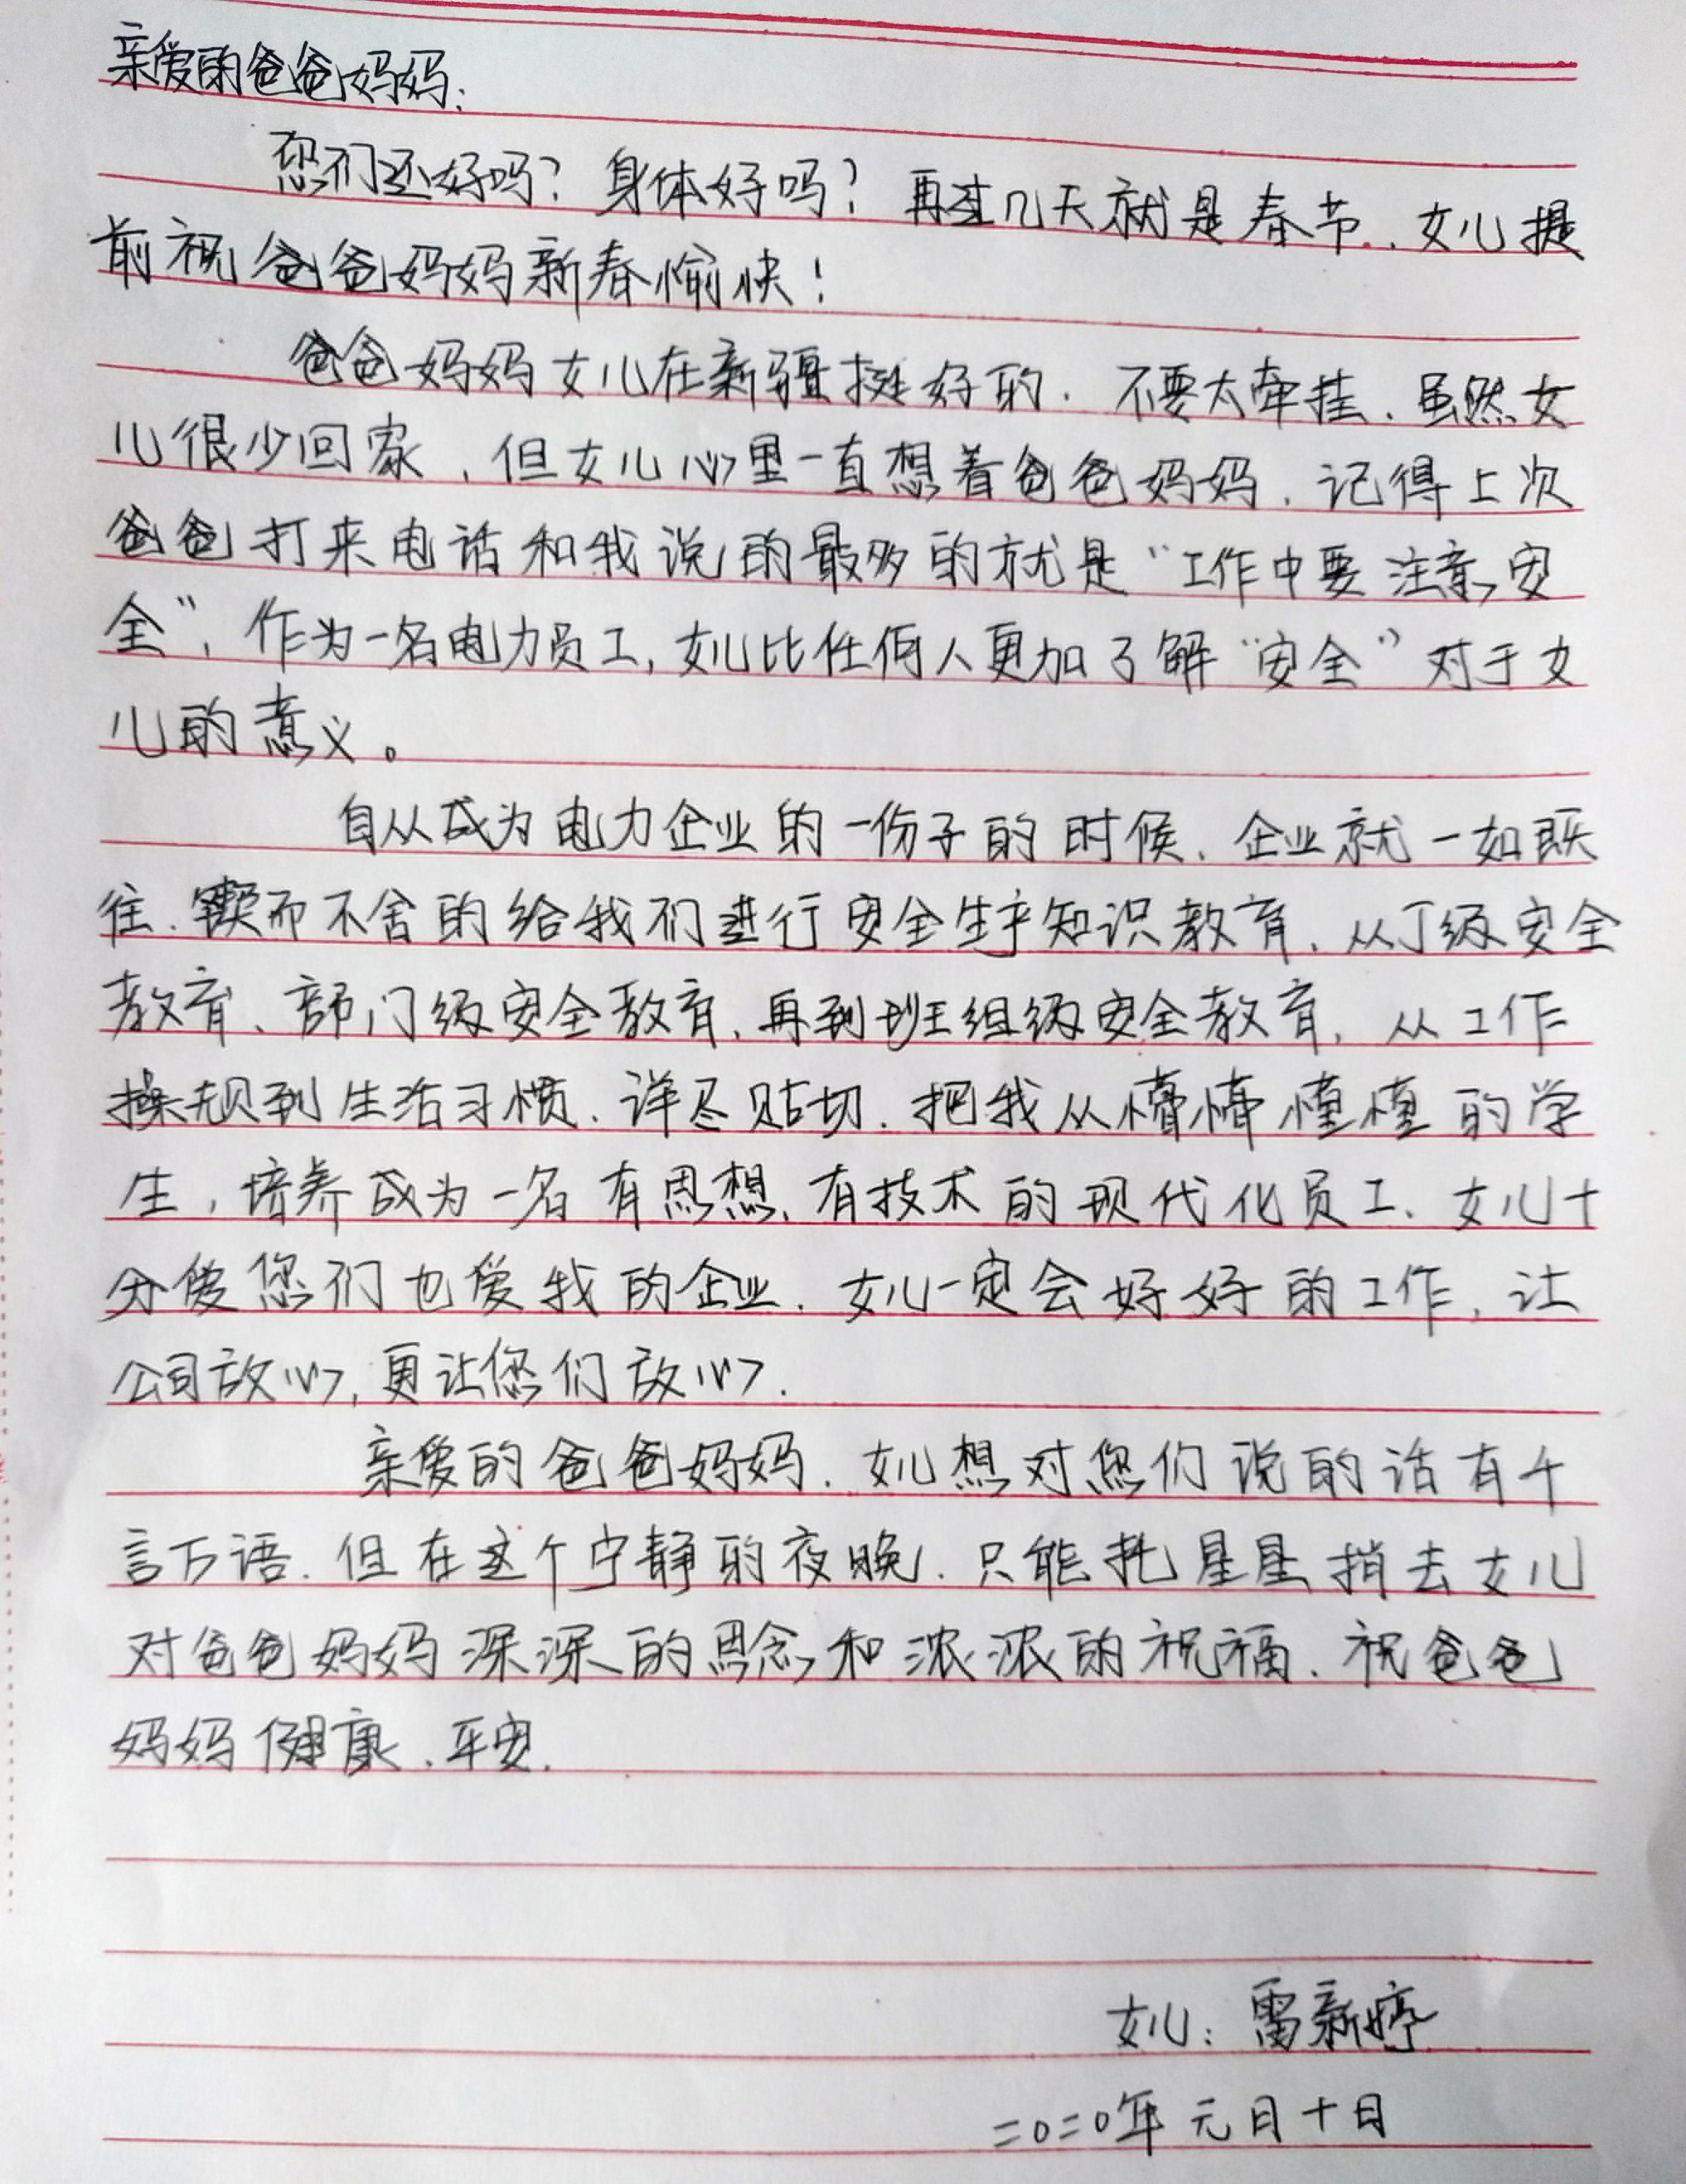 亲爱的爸爸妈妈：
您们还好吗？身体好吗？再过几天就是春节、女儿提
前祝爸爸妈妈新春愉快！
爸爸妈妈女儿在新疆挺好的．不要太牵挂．虽然女
儿很少回家，但女儿心里一直想着爸爸妈妈．记得上次
爸爸打来电话和我说的最多的就是“工作中要注意安
全”，作为一名电力员工，女儿比任何人更加了解“安全”对于女
儿的意义。
自从成为电力企业的一份子的时候、企业就一如既
往．锲而不舍的给我们进行安全生产知识教育、从厂级安全
教育、部门级安全教育、再到班组级安全教育，从工作
操规到生活习惯．详尽贴切．把我从懵懵懂懂的学
生，培养成为一名有思想、有技术的现代化员工、女儿十
分爱您们也爱我的企业．女儿一定会好好的工作，让
公司放心，更让您们放心．
亲爱的爸爸妈妈．女儿想对您们说的话有千
言万语．但在这个宁静的夜晚．只能托星星捎去女儿
对爸爸妈妈深深的思念和浓浓的祝福．祝爸爸
妈妈健康、平安．
女儿：雷新婷
二〇二〇年元月十日